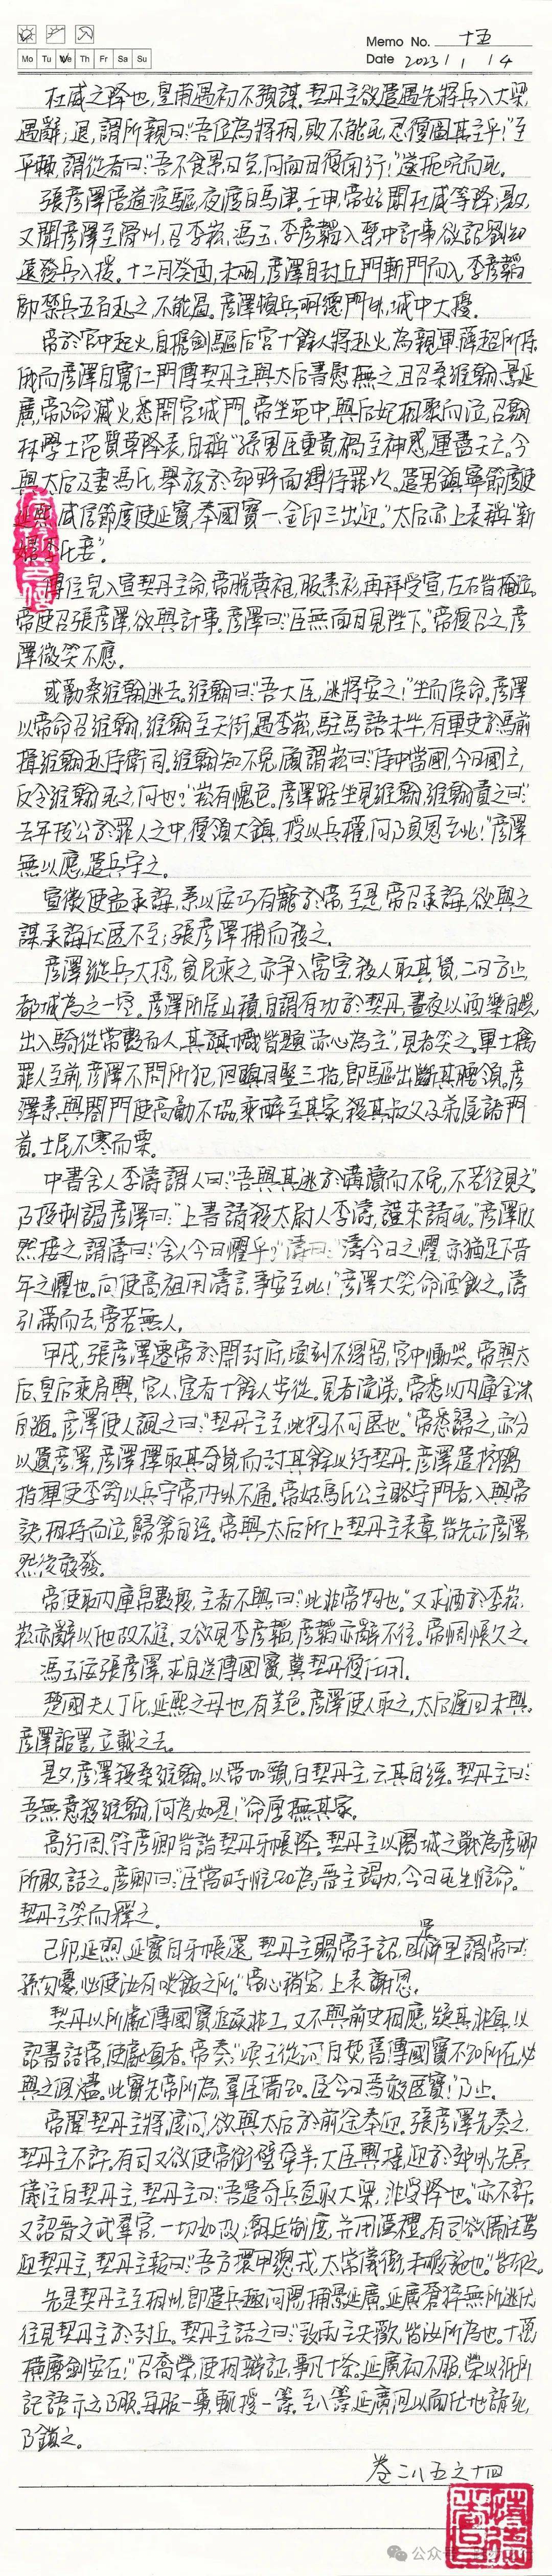 Memo No. 十五
Mo Tu We Th Fr Sa Su
Date 2023 / 1 / 4
杜威之降也，皇甫遇初不預謀。契丹主欲遣遇先將兵入大梁，
遇辭；退，謂所親曰：“吾位為將相，敗不能死，忍復圖其主乎！”至
平棘，謂從者曰：“吾不食累日矣，何面目復南行！”遂扼吭而死。
張彥澤倍道疾驅，夜度白馬津。壬申，帝始聞杜威等降；是夕，
又聞彥澤至滑州，召李崧、馮玉、李彥韜入禁中計事，欲詔劉知
遠發兵入援。十二月癸酉，未明，彥澤自封丘門斬門而入，李彥韜
帥禁兵五百赴之，不能遏。彥澤頓兵明德門外，城中大擾。
帝於宮中起火，自攜劍驅后宮十餘人將赴火，為親軍薛超所持。
俄而彥澤自寬仁門傳契丹主與太后書慰撫之，且召桑維翰、景延
廣，帝乃命滅火，悉開宮城門。帝坐苑中，與后妃相聚而泣，召翰
林學士范質草降表，自稱“孫男臣重貴，禍至神惑，運盡天亡。今
與太后及妻馮氏，舉族於郊野面縛待罪次。遣男鎮寧節度使
延煦、威信節度使延寶，奉國寶一、金印三出迎。”太后亦上表稱“新
婦李氏妾”。
傅住兒入宣契丹主命，帝脫黃袍，服素衫，再拜受宣，左右皆掩泣。
帝使召張彥澤，欲與計事。彥澤曰：“臣無面目見陛下。”帝復召之，彥
澤微笑不應。
或勸桑維翰逃去。維翰曰：“吾大臣，逃將安之！”坐而俟命。彥澤
以帝命召維翰，維翰至天街，遇李崧，駐馬語未畢，有軍吏於馬前
揖維翰赴侍衛司。維翰知不免，顧謂崧曰：“侍中當國，今日國亡，
反令維翰死之，何也？”崧有愧色。彥澤踞坐見維翰，維翰責之曰：“
去年拔公於罪人之中，復領大鎮，授以兵權，何乃負恩至此！”彥澤
無以應，遣兵守之。
宣徽使孟承誨，素以佞巧有寵於帝，至是，帝召承誨，欲與之
謀，承誨伏匿不至；張彥澤捕而殺之。
彥澤縱兵大掠，貧民乘之，亦爭入富室，殺人取其貨，二日方止，
都城為之一空。彥澤所居山積，自謂有功於契丹，晝夜以酒樂自娛，
出入騎從常數百人，其旗幟皆題“赤心為主”，見者笑之。軍士擒
罪人至前，彥澤不問所犯，但瞋目豎三指，即驅出斷其腰領。彥
澤素與閤門使高勳不協，乘醉至其家，殺其叔父及弟，尸諸門
首。士民不寒而栗。
中書舍人李濤謂人曰：“吾與其逃於溝瀆而不免，不若往見之。”
乃投刺謁彥澤曰：“上書請殺太尉人李濤，謹來請死。”彥澤欣
然接之，謂濤曰：“舍人今日懼乎？”濤曰：“濤今日之懼，亦猶足下昔
年之懼也。向使高祖用濤言，事安至此！”彥澤大笑，命酒飲之。濤
引滿而去，旁若無人。
甲戌，張彥澤遷帝於開封府，頃刻不得留，宮中慟哭。帝與太
后、皇后乘肩輿，宮人、宦者十餘人步從。見者流涕。帝悉以內庫金珠
自隨。彥澤使人諷之曰：“契丹主至，此物不可匿也。”帝悉歸之，亦分
以遺彥澤，彥澤擇取其奇貨，而封其餘以待契丹。彥澤遣控鶴
指揮使李筠以兵守帝，內外不通。帝姑烏氏公主賂守門者，入與帝
訣，相持而泣，歸第自經。帝與太后所上契丹主表章，皆先示彥澤，
然後敢發。
帝使取內庫帛數段，主者不與，曰：“此非帝物也。”又求酒於李崧，
崧亦辭以他故不進。又欲見李彥韜，彥韜亦辭不往。帝惆悵久之。
馮玉佞張彥澤，求自送傳國寶，冀契丹復任用。
楚國夫人丁氏，延煦之母也，有美色。彥澤使人取之，太后遲回未與，
彥澤詬詈，立載之去。
是夕，彥澤殺桑維翰。以帶加頸，白契丹主，云其自經。契丹主曰：“
吾無意殺維翰，何為如是！”命厚撫其家。
高行周、符彥卿皆詣契丹牙帳降。契丹主以陽城之戰為彥卿
所敗，詰之。彥卿曰：“臣當時惟知為晉主竭力，今日死生惟命。”
契丹主笑而釋之。
己卯，延煦、延寶自牙帳還，契丹主賜帝手詔，且遣解里謂帝曰：“
孫勿憂，必使汝有噉飯之所。”帝心稍安，上表謝恩。
契丹以所獻傳國寶追琢非工，又不與前史相應，疑其非真，以
詔書詰帝，使獻真者。帝奏：“頃王從珂自焚，舊傳國寶不知所在，必
與之俱燼。此寶先帝所為，群臣備知。臣今日焉敢匿寶！”乃止。
帝聞契丹主將度河，欲與太后於前途奉迎。張彥澤先奏之，
契丹主不許。有司又欲使帝銜璧牽羊，大臣輿櫬，迎於郊外，先具
儀注白契丹主，契丹主曰：“吾遣奇兵直取大梁，非受降也。”亦不許。
又詔晉文武群官，一切如故；朝廷制度，并用漢禮。有司欲備法駕
迎契丹主，契丹主報曰：“吾方擐甲總戎，太常儀衛，未暇施也。”皆卻之。
先是契丹主至相州，即遣兵趣河陽，捕景延廣。延廣蒼猝無所逃伏，
往見契丹主於封丘。契丹主詰之曰：“致兩主失歡，皆汝所為也。十萬
橫磨劍安在！”召喬榮，使相辯証，事凡十条。延廣初不服，榮以紙所
記語示之，乃服。每服一事，輒授一籌。至八籌，延廣但以面伏地請死，
乃鎖之。
卷二八五之十四
公众号